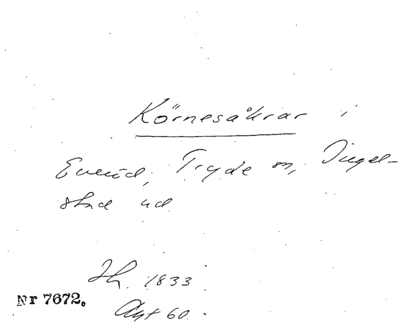 Körnesåkrar i
Everöd, Tryde sn, Ingel-
stad hd
Jh. 1833.
Nr 7672.
Akt 60.